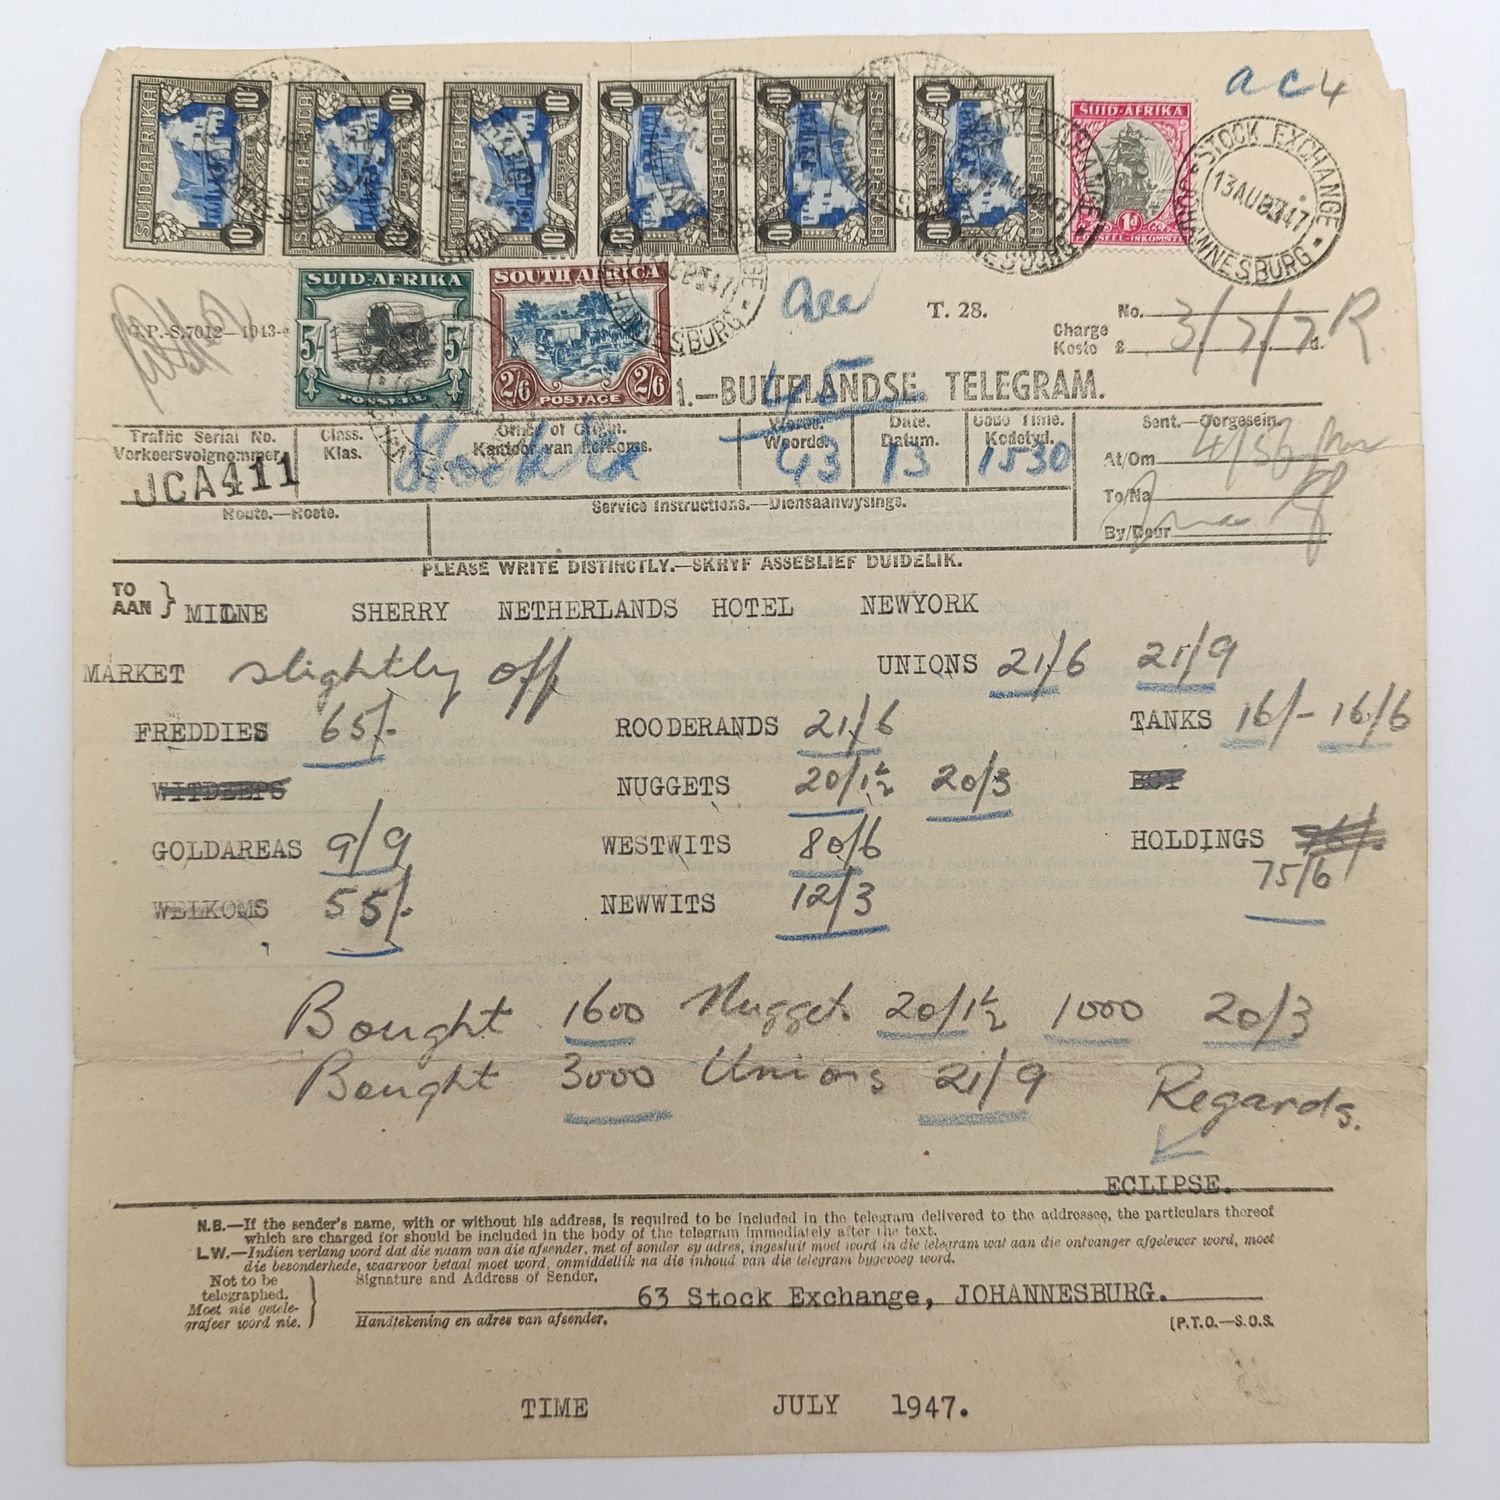 SUID-AFRIKA 10/-
SOUTH AFRICA 10/-
SUID-AFRIKA 10/-
SUID-AFRIKA 10/-
SOUTH AFRICA 10/-
SUID-AFRIKA 10/-
SUID-AFRIKA 1D POSSEEL-INKOMSTE
ac4
STOCK EXCHANGE 13AU47 JOHANNESBURG
SUID-AFRIKA 5/- 5/- POSSEEL
SOUTH AFRICA 2/6 POSTAGE 2/6
G.P.-S.7012—1943-4
T. 28.
No.
Charge Koste £ 3/7/7 d. R
1.—BUITELANDSE TELEGRAM.
45
Traffic Serial No. Verkeersvolgnommer. JCA411
Class. Klas.
Office of Origin. Kantoor van herkoms. Stock Ex
Words. Woorde. 43
Date. Datum. 13
Code Time. Kodetyd. 1530
Sent.—Oorgesein.
At/Om 4/56
To/Na
By/Deur
Route.—Roete.
Service Instructions.—Diensaanwysings.
PLEASE WRITE DISTINCTLY.—SKRYF ASSEBLIEF DUIDELIK.
TO AAN } MILNE SHERRY NETHERLANDS HOTEL NEWYORK
MARKET slightly off UNIONS 21/6 21/9
FREDDIES 65/- ROODERANDS 21/6 TANKS 16/- 16/6
WITDEEPS NUGGETS 20/1½ 20/3
GOLDAREAS 9/9 WESTWITS 80/6 HOLDINGS 75/6
WELKOMS 55/- NEWWITS 12/3
Bought 1600 Nuggets 20/1½ 1000 20/3
Bought 3000 Unions 21/9 Regards.
ECLIPSE.
N.B.—If the sender's name, with or without his address, is required to be included in the telegram delivered to the addressee, the particulars thereof
which are charged for should be included in the body of the telegram immediately after the text.
L.W.—Indien verlang word dat die naam van die afsender, met of sonder sy adres, ingesluit moet word in die telegram wat aan die ontvanger afgelewer word, moet
die besonderhede, waarvoor betaal moet word, onmiddellik na die inhoud van die telegram bygevoeg word.
Not to be telegraphed. Moet nie getele-grafeer word nie. }
Signature and Address of Sender.
63 Stock Exchange, JOHANNESBURG.
Handtekening en adres van afsender.
[P.T.O.—S.O.S.
TIME JULY 1947.